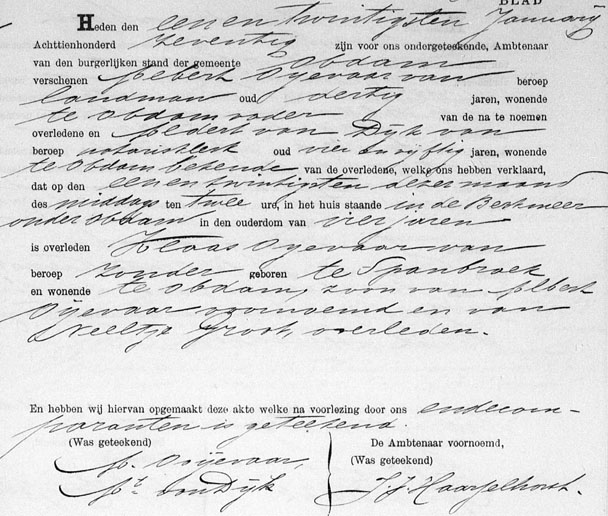 BLAD
Heden den een en twintigsten Januarij
Achttienhonderd zeventig zijn voor ons ondergeteekende, Ambtenaar
van den burgerlijken stand der gemeente Obdam
verschenen Albert Oijevaar van beroep
landman oud dertig jaren, wonende
te Obdam vader van de na te noemen
overledene en Pieter van Dijk van
beroep notarisklerk oud vier en vijftig jaren, wonende
te Obdam bekende van de overledene, welke ons hebben verklaard,
dat op den een en twintigsten dezer maand
des middags ten twee ure, in het huis staande in de Berkmeer
onder Obdam in den ouderdom van vier jaren
is overleden Klaas Oijevaar van
beroep zonder geboren te Spanbroek
en wonende te Obdam, zoon van Albert
Oijevaar voornoemd en van
Neeltje Groot, overleden.
En hebben wij hiervan opgemaakt deze akte welke na voorlezing door ons en de com-
paranten is geteekend.
(Was geteekend) De Ambtenaar voornoemd,
(Was geteekend)
A. Oijevaar,
P. van Dijk